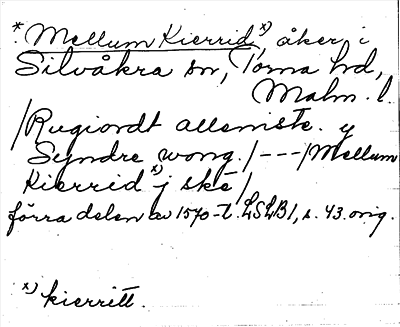 * Mellum Kierrid x), åker i
Silvåkra sn, Torna hd,
Malm. l.
/Rugiordt alleniste. y
Syndre wong./---/Mellum
Kierrid x) j ske/
förra delen av 1570-t. LSLB1, s. 43. orig.
x) kierritt.